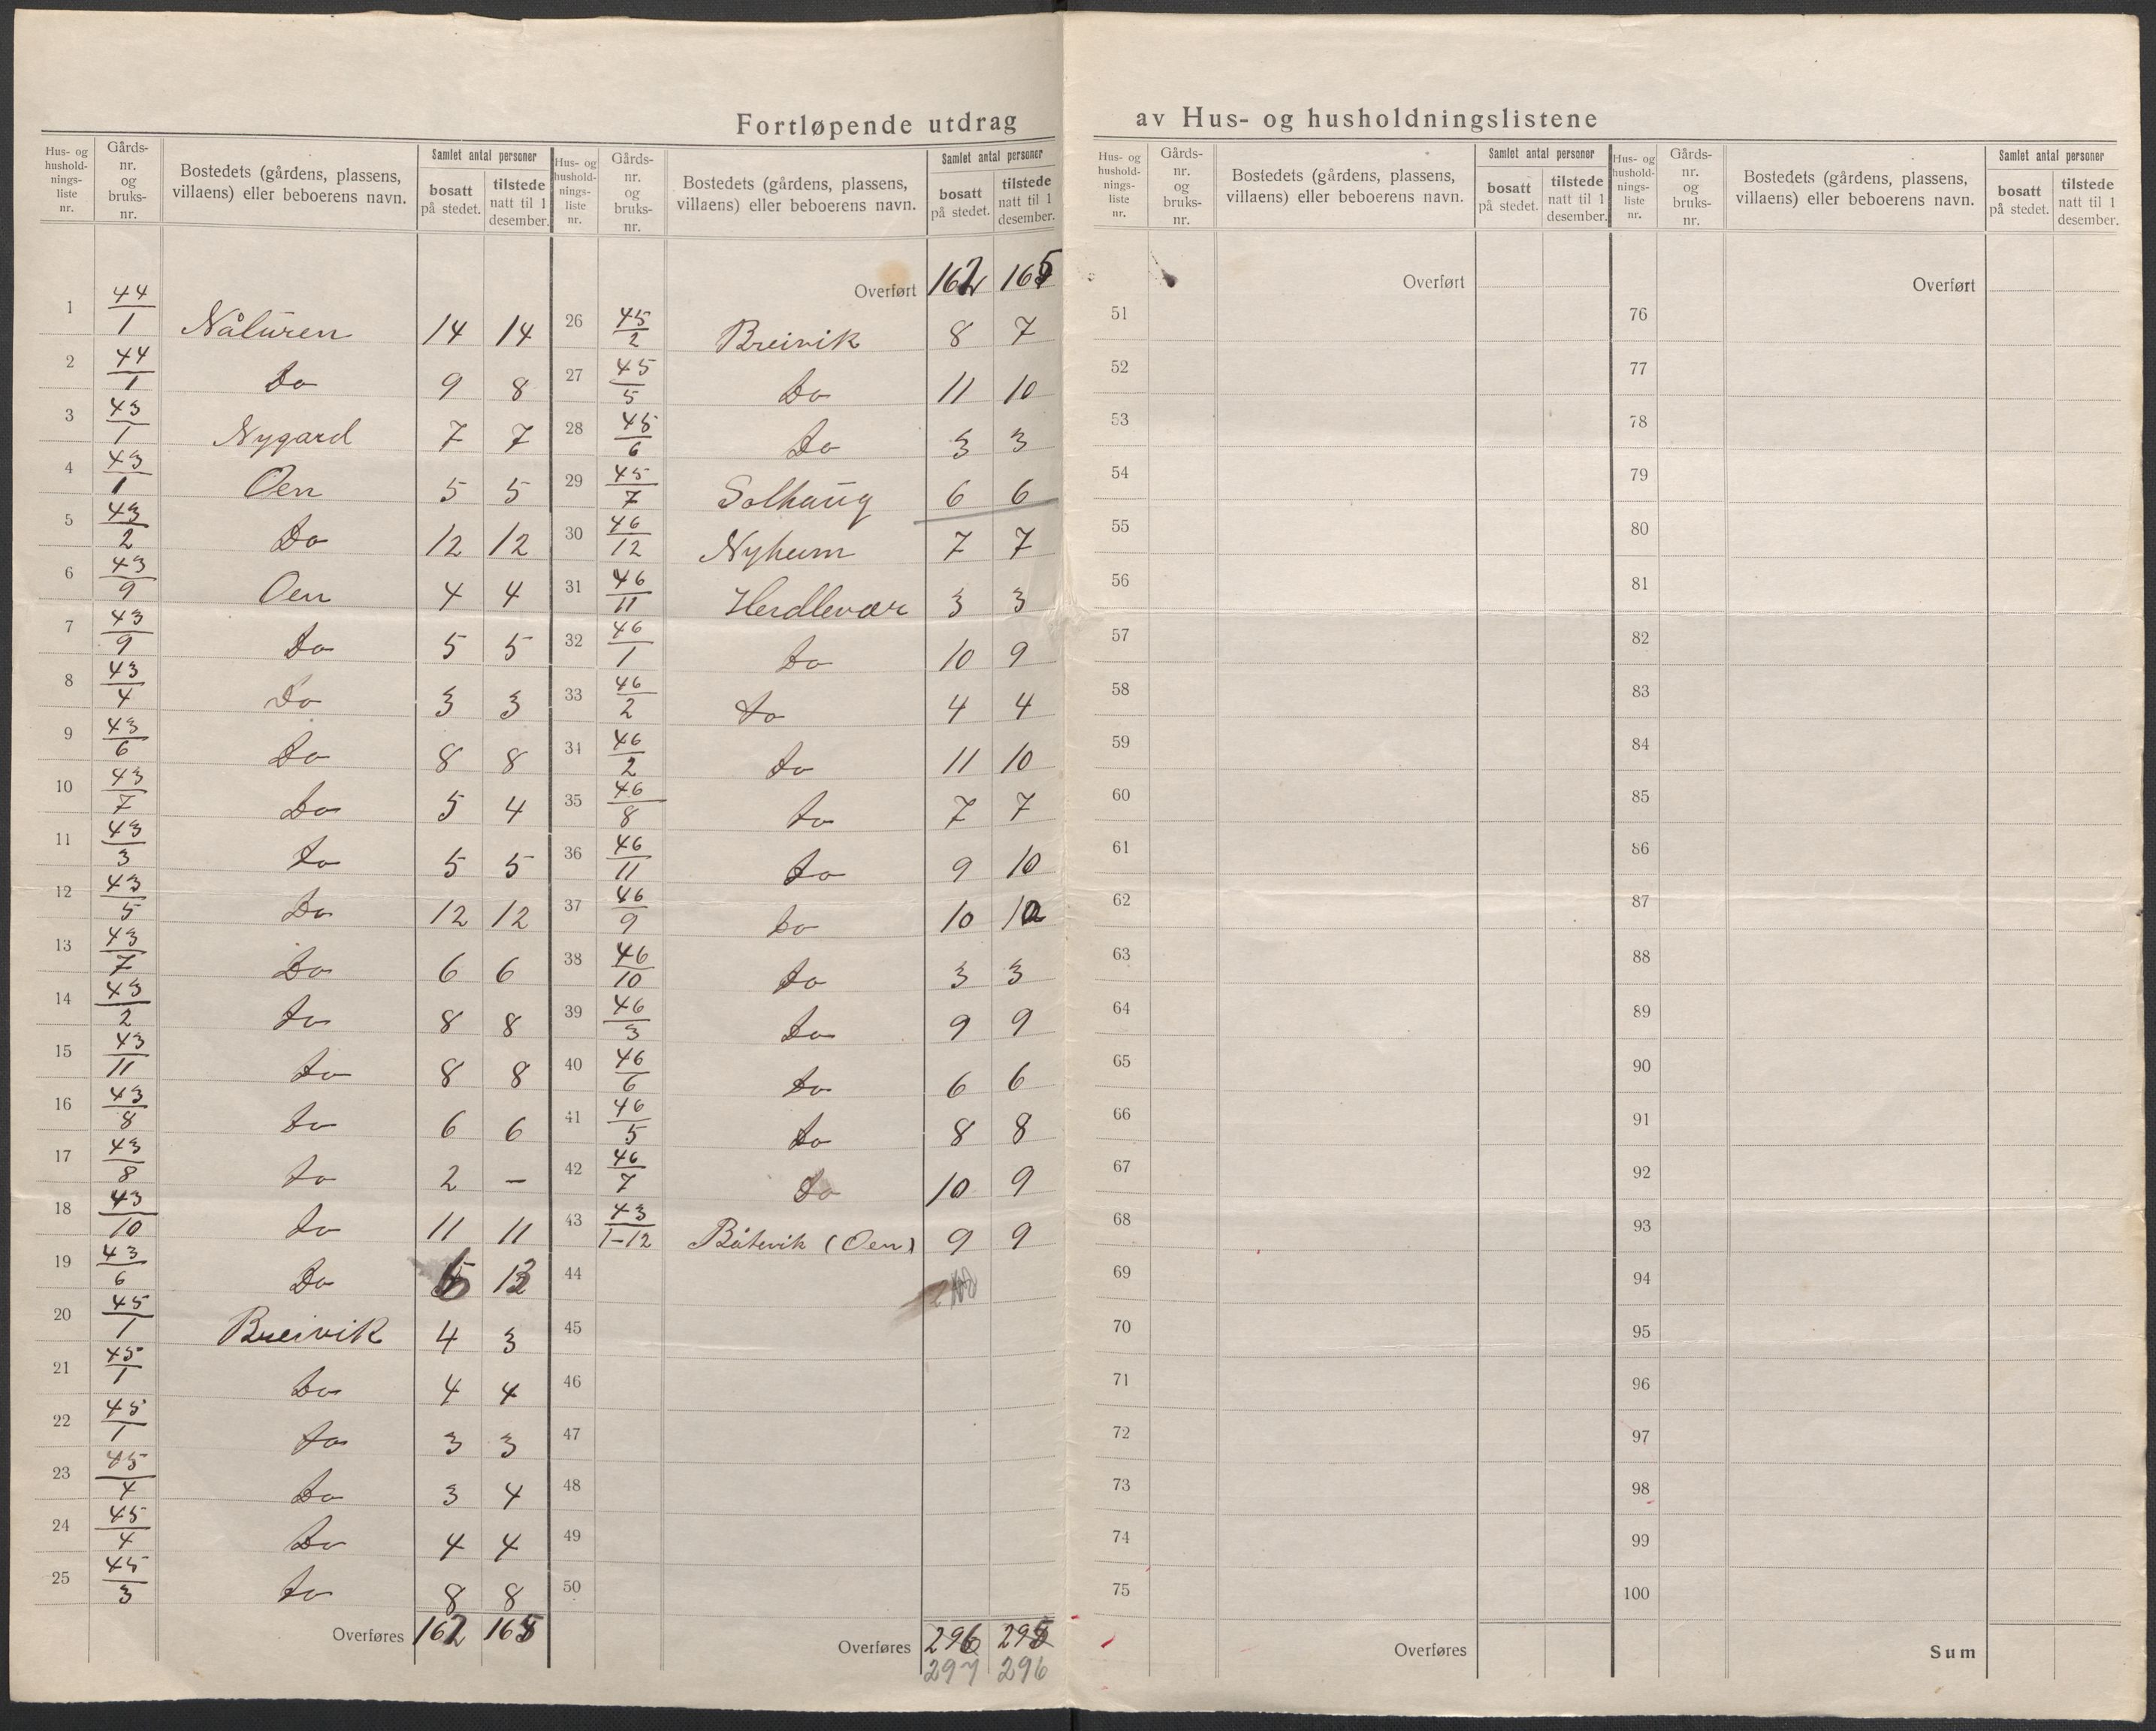 Fortløpende utdrag av Hus- og husholdningslistene
Hus- og husholdnings-liste nr. | Gårds-nr. og bruks-nr. | Bostedets (gårdens, plassens, villaens) eller beboerens navn. | Samlet antal personer bosatt på stedet. | tilstede natt til 1 desember.
1 44/1 Nåluren 14 14
2 44/1 Do 9 8
3 43/1 Nygard 7 7
4 43/1 Oen 5 5
5 43/2 Do 12 12
6 43/9 Oen 4 4
7 43/9 Do 5 5
8 43/4 Do 3 3
9 43/6 Do 8 8
10 43/7 Do 5 4
11 43/3 Do 5 5
12 43/5 Do 12 12
13 43/7 Do 6 6
14 43/2 Do 8 8
15 43/11 Do 8 8
16 43/8 Do 6 6
17 43/8 Do 2 –
18 43/10 Do 11 11
19 43/6 Do
20 45/1 Breivik 4 3
21 45/1 Do 4 4
22 45/1 Do 3 3
23 45/4 Do 3 4
24 45/4 Do 4 4
25 45/3 Do 8 8
Overføres 162 165
Hus- og husholdnings-liste nr. | Gårds-nr. og bruks-nr. | Bostedets (gårdens, plassens, villaens) eller beboerens navn. | Samlet antal personer bosatt på stedet. | tilstede natt til 1 desember.
Overført 162 165
26 45/2 Breivik 8 7
27 45/5 Do 11 10
28 45/6 Do 3 3
29 45/7 Solhaug 6 6
30 46/12 Nyheim 7 7
31 46/11 Herdlevær 3 3
32 46/1 Do 10 9
33 46/2 Do 4 4
34 46/2 Do 11 10
35 46/8 Do 7 7
36 46/11 Do 9 10
37 46/9 Do 10 10
38 46/10 Do 3 3
39 46/3 Do 9 9
40 46/6 Do 6 6
41 46/5 Do 8 8
42 46/7 Do 10 9
43 43/1-12 Båtevik (Oen) 9 9
44
45
46
47
48
49
50
Overføres 296 295
297 296
Hus- og husholdnings-liste nr. | Gårds-nr. og bruks-nr. | Bostedets (gårdens, plassens, villaens) eller beboerens navn. | Samlet antal personer bosatt på stedet. | tilstede natt til 1 desember.
Overført
51
52
53
54
55
56
57
58
59
60
61
62
63
64
65
66
67
68
69
70
71
72
73
74
75
Overføres
Hus- og husholdnings-liste nr. | Gårds-nr. og bruks-nr. | Bostedets (gårdens, plassens, villaens) eller beboerens navn. | Samlet antal personer bosatt på stedet. | tilstede natt til 1 desember.
Overført
76
77
78
79
80
81
82
83
84
85
86
87
88
89
90
91
92
93
94
95
96
97
98
99
100
Sum